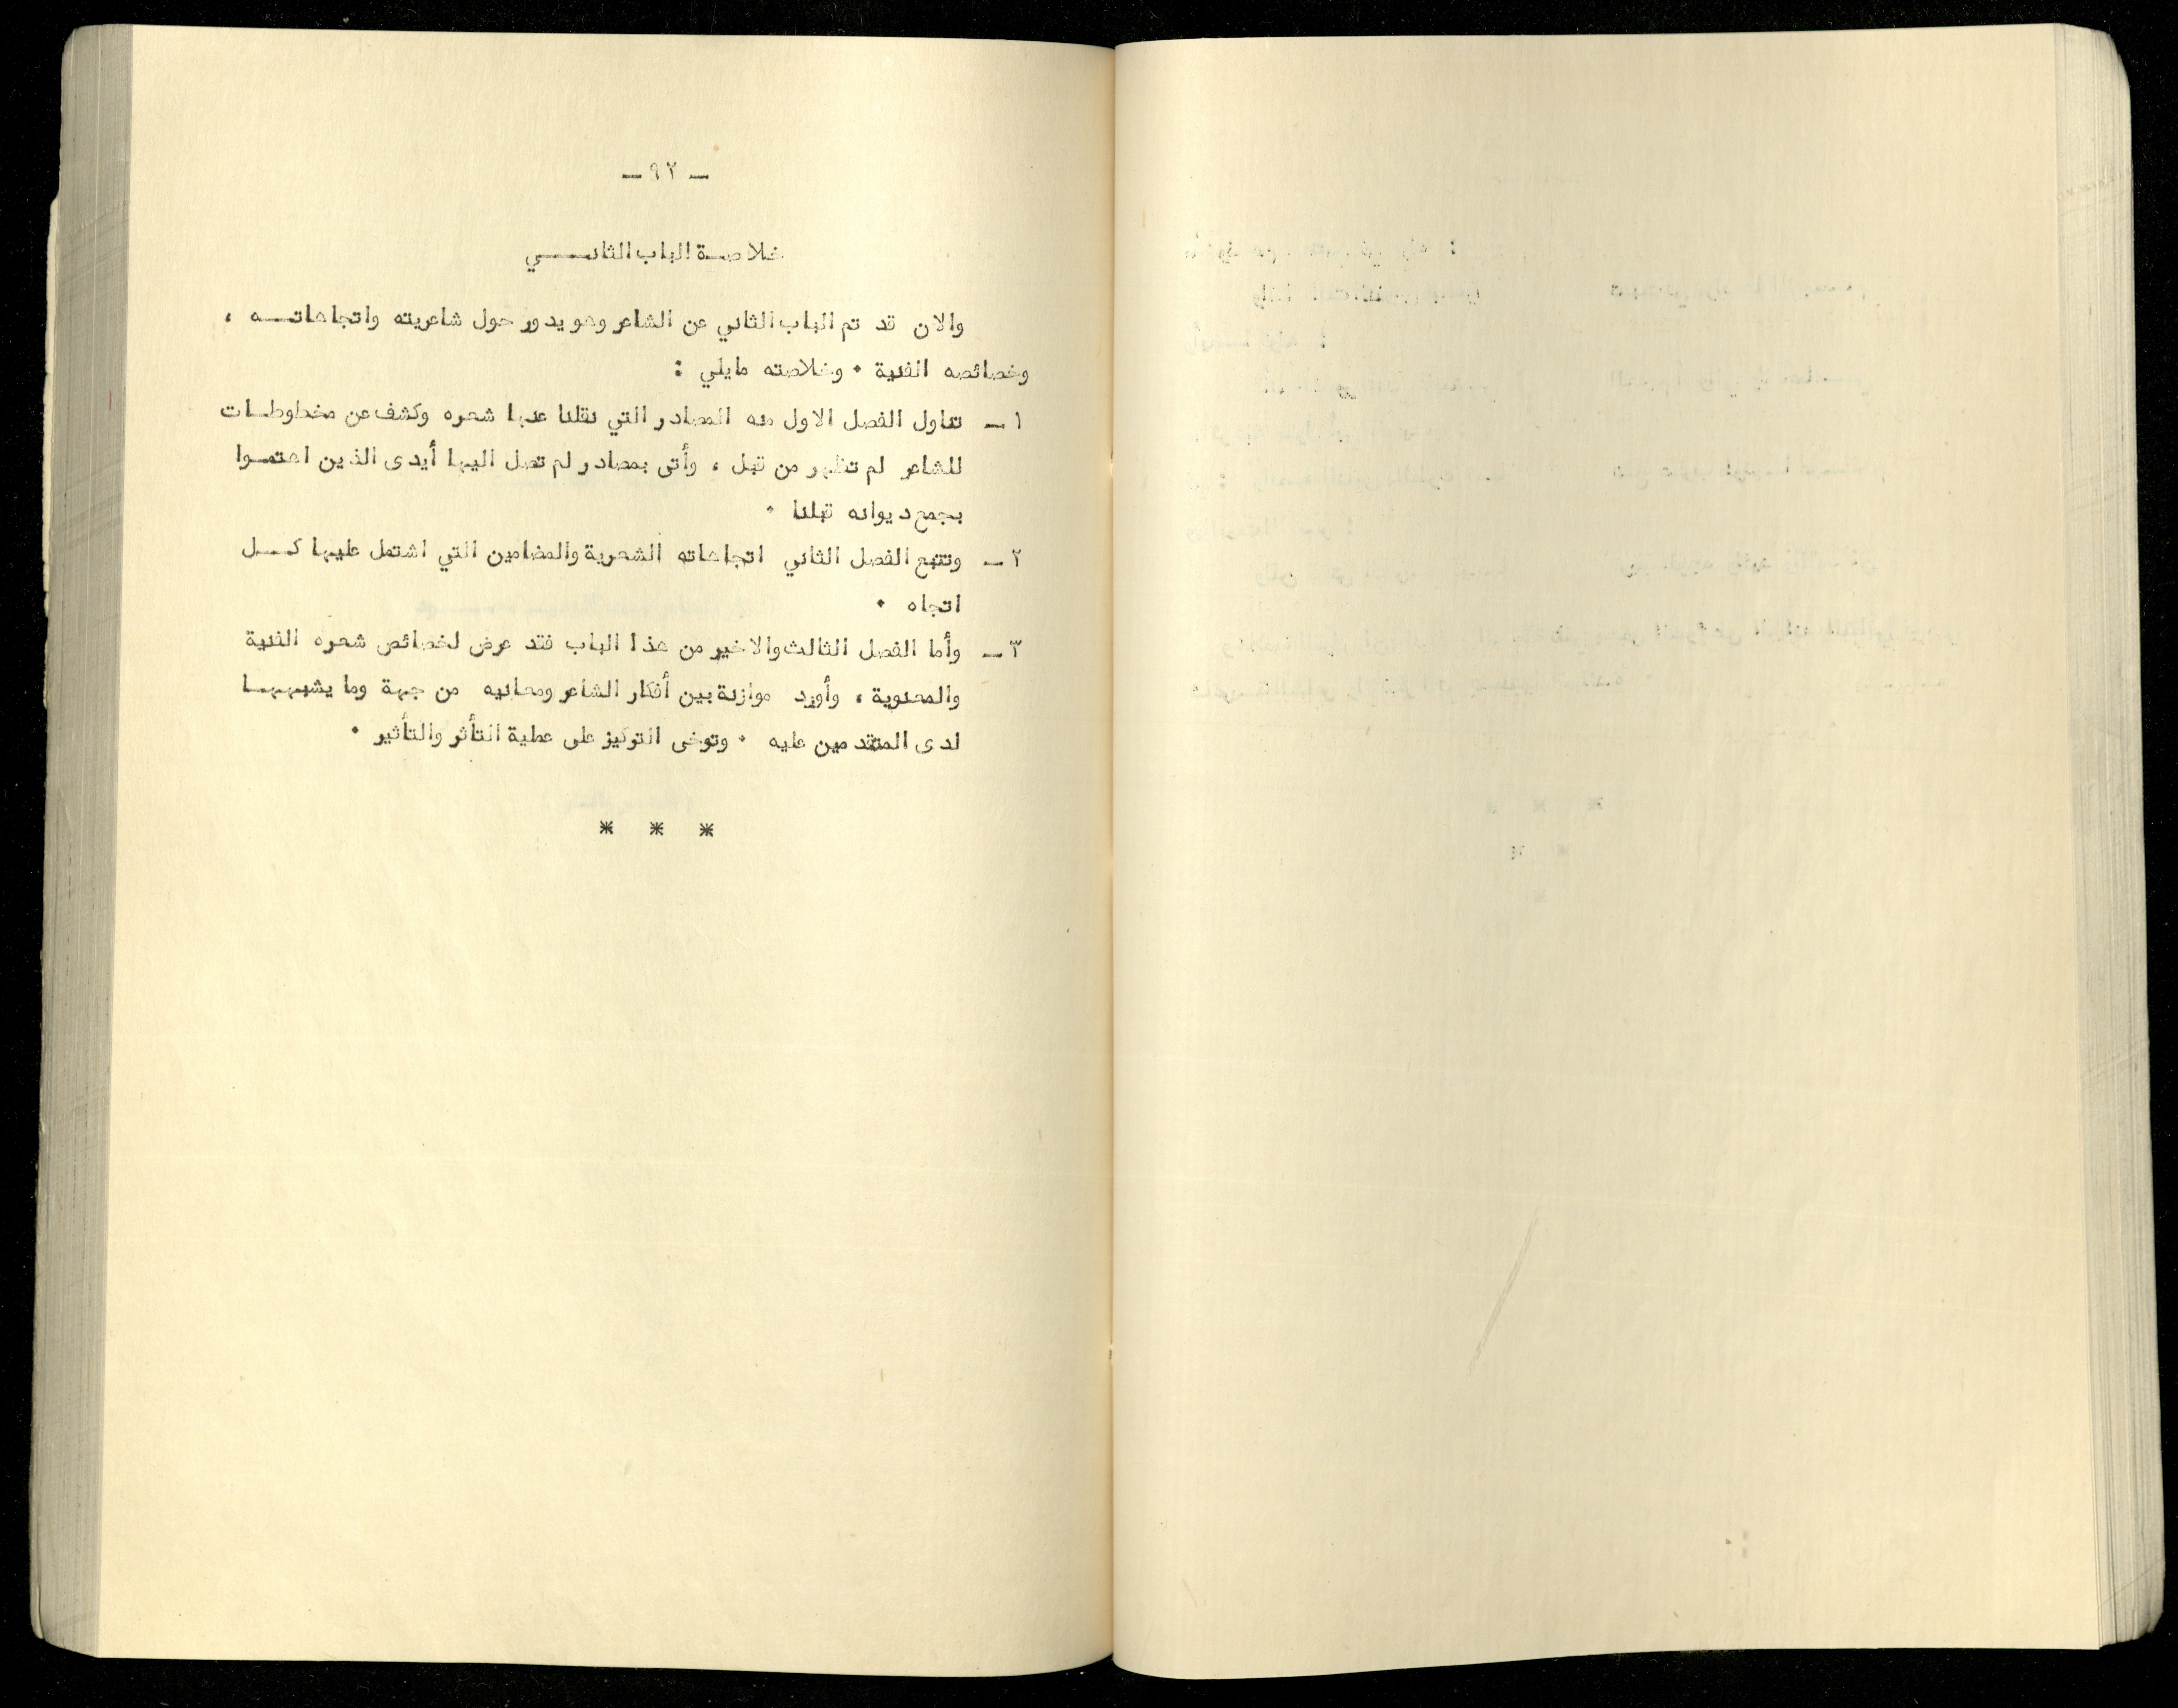 ـ ٩٢ ـ
خلاصـة الباب الثانــــي
والان قد تم الباب الثاني عن الشاعر وهو يدور حول شاعريته واتجاهاتــه ،
وخصائصه الفنية ٠ وخلاصته مايلي :
١ ـ تناول الفصل الاول منه المصادر التي نقلنا عنها شعره وكشف عن مخطوطـات
للشاعر لم تظهر من قبل ، وأتى بمصادر لم تصل اليها أيدى الذين اهتمـوا
بجمع ديوانه قبلنا ٠
٢ ـ وتتبع الفصل الثاني اتجاهاته الشعرية والمضامين التي اشتمل عليها كــل
اتجاه ٠
٣ ـ وأما الفصل الثالث والاخير من هذا الباب فقد عرض لخصائص شعره الفنية
والمعنوية ، وأورد موازنة بين أفكار الشاعر ومعانيه من جهة وما يشبههـا
لدى المتقدمين عليه ٠ وتوخى التركيز على عملية التأثر والتأثير ٠
* * *